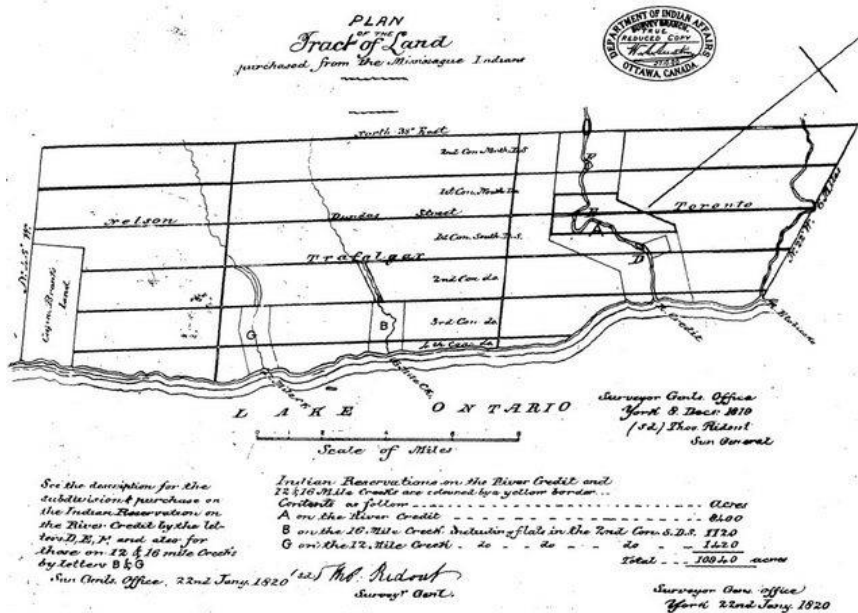 PLAN
OF THE
Tract of Land
purchased from the Missisague Indians
DEPARTMENT OF INDIAN AFFAIRS
SURVEY BRANCH,
TRUE
REDUCED COPY
OTTAWA, CANADA
North 38° East
2nd Con. North D.S.
1st Con. North Do.
Nelson
Dundas Street
Toronto
1st Con. South D.S.
Trafalgar
2nd Con. do
3rd Con. do
4th Con. do
N. 45° W.
Capn. Brants
land
F
E
A
D
G
B
R. Credit
R. Etobicoke
LAKE ONTARIO
Scale of Miles
Surveyor Genls. Office
York 8. Decr. 1819
(sd) Thos. Ridout
Sur. General
See the description for the
subdivision & purchase on
the Indian Reservation on
the River Credit by the let-
ters D, E, F, and also for
those on 12 & 16 mile Creeks
by letters B & G
Sur. Genls. Office, 22nd Jany. 1820
Indian Reservations on the River Credit and
12 & 16 Mile Creeks are coloured by a yellow border...
Contents as follow Acres
A on the River Credit 8400
B on the 16 Mile Creek Including flats in the 2nd Con. S.D.S. 1120
G on the 12 Mile Creek do do do 1420
Total 10940 acres
(sd) Tho. Ridout
Surveyr Genl.
Surveyor Genl. office
York 22nd Jany. 1820